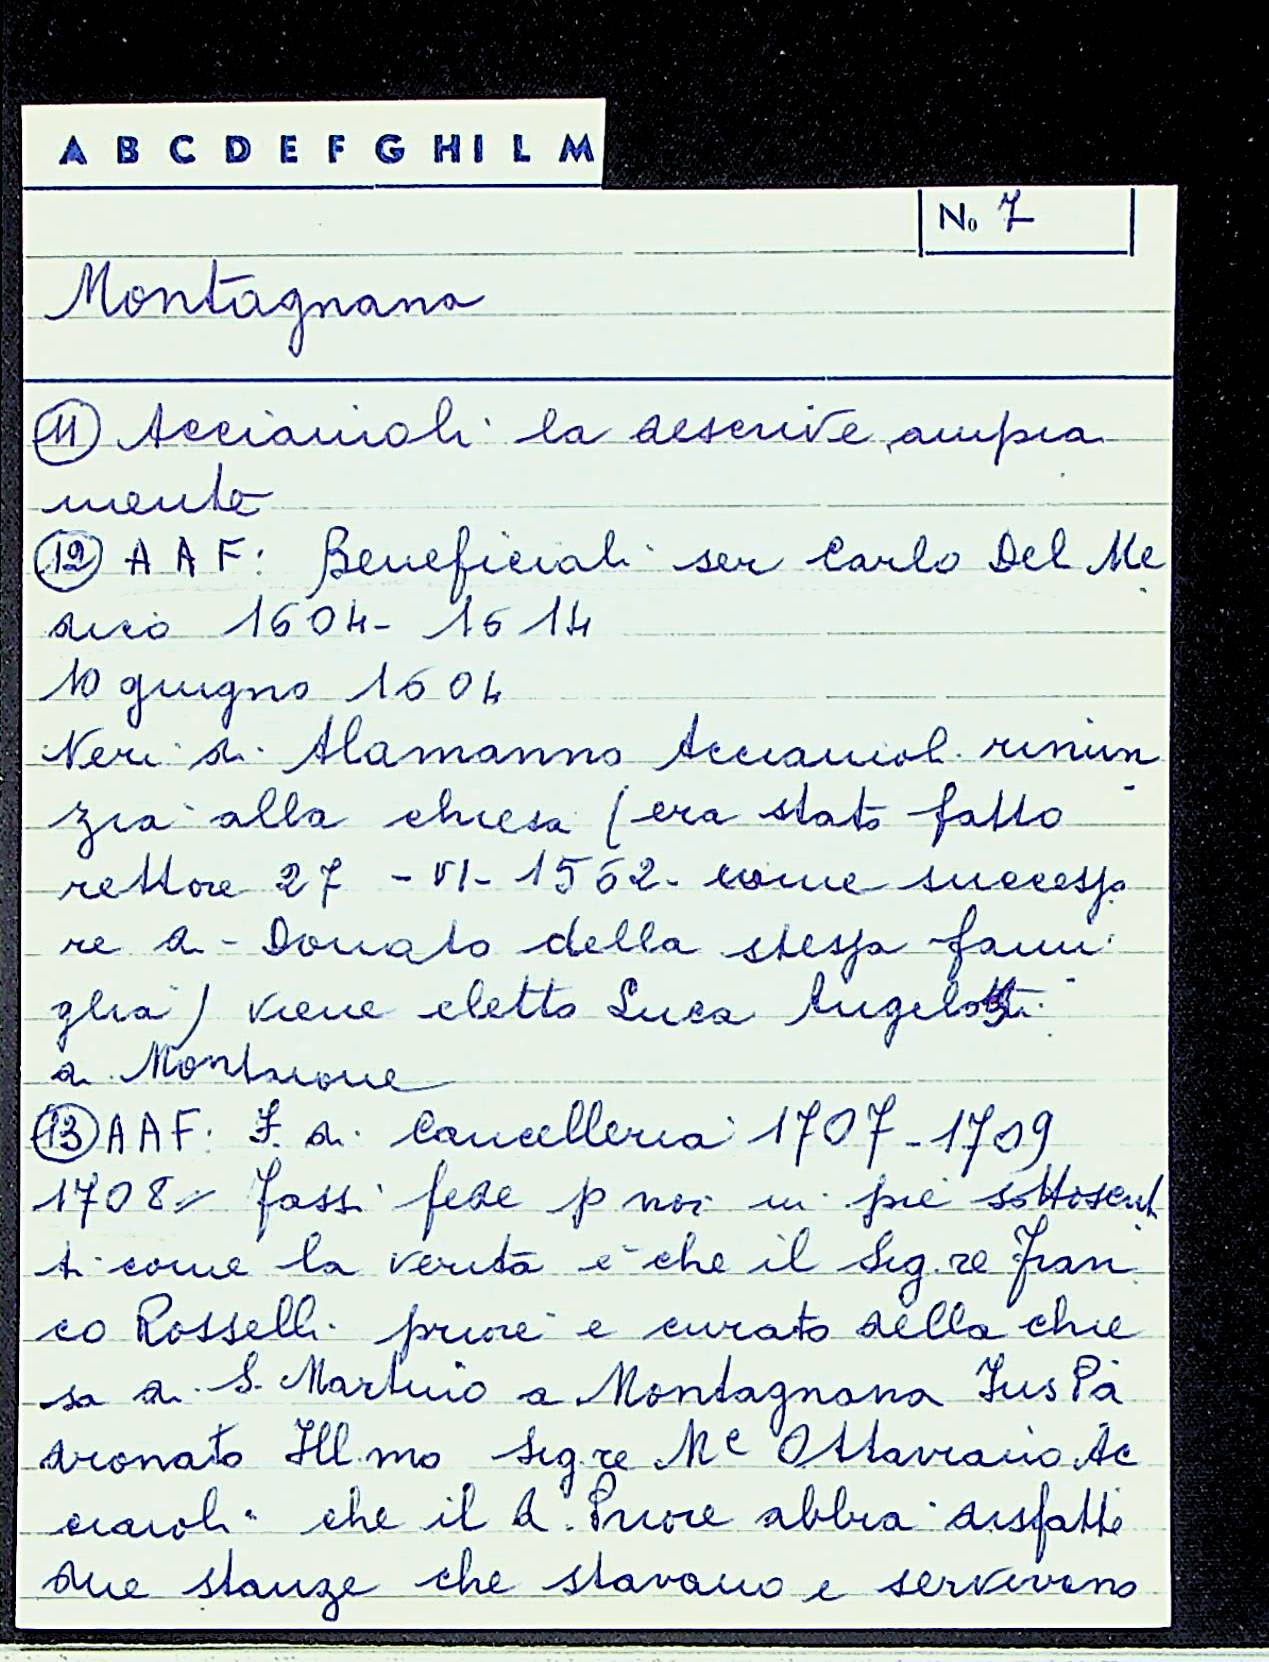 A B C D E F G H I L M
No 7
Montagnana
11 Acciaiuoli la descrive ampia
mente
12 A A F: Beneficiali ser Carlo Del Me
dico 1604- 1614
10 giugno 1604
Neri di Alamanno Acciaiuoli rinun
zia alla chiesa (era stato fatto
rettore 27 -VI- 1562 come successo
re di Donato della stessa fami
glia) viene eletto Luca Angelotti
di Montaione
13 A A F: F. di Cancelleria 1707-1709
1708 Fassi fede p noi in piè sottoscrit
ti come la verità è che il Sig.re Fran
co Rosselli priore e curato della chie
sa di S. Martino a Montagnana Jus Pa
dronato Ill.mo Sig.re Mc Ottaviano Ac
ciaioli che il d. Priore abbia disfatte
due stanze che stavano e servivano